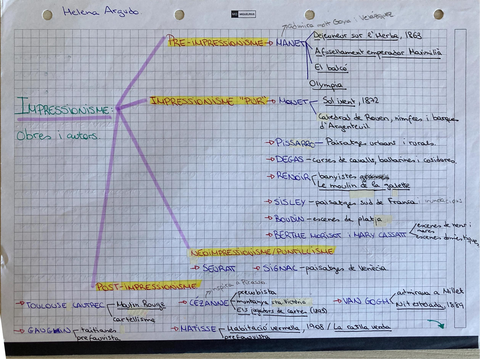 Helena Argudo
PRE-IMPRESSIONISME → MANET
Dejeuner sur l'Herba, 1863
Afusellament emperador Maximilià
El balcó
Olympia
IMPRESSIONISME:
Obres i autors.
IMPRESSIONISME "PUR" → MONET
Sol ixent, 1872
Catedral de Rouen, nimfees i barques
d'Argenteuil
→ PISSARRO - Paisatges urbans i rurals.
→ DEGAS - curses de cavalls, ballarines i cosidores
→ RENOIR
banyistes
Le moulin de la galette
→ SISLEY - paisatges sud de França
→ BOUDIN - escenes de platja
→ BERTHE MORISOT i MARY CASSATT
escenes de nens i
mares
escenes domèstiques
NEOIMPRESSIONISME/PUNTILLISME
→ SEURAT → SIGNAC - paisatges de Venècia
POST-IMPRESSIONISME
→ TOULOUSE LAUTREC
Mulin Rouge
cartellisme
→ CÉZANNE
precubista
muntanya sta. Victòria
EU jugadors de cartes
→ VAN GOGH
admirava a Millet
Nit estrelada, 1889
→ GAUGUIN
tahitianes
prefauvista
→ MATISSE
Habitació vermella, 1908 / La ratlla verda
prefauvista